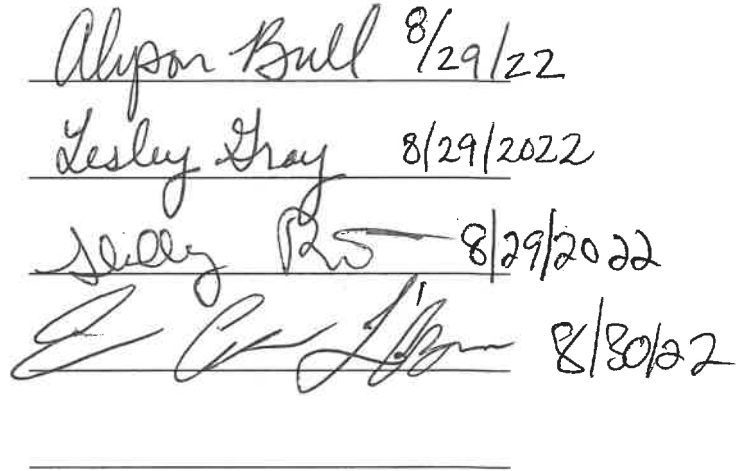 Alyson Bull 8/29/22
Lesley Gray 8/29/2022
Shelly 8/29/2022
8/30/22